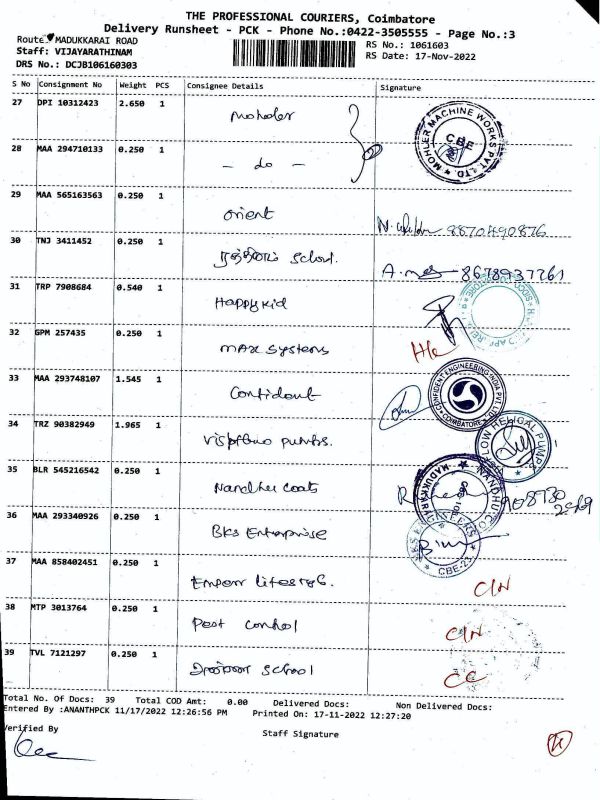 THE PROFESSIONAL COURIERS, Coimbatore
Delivery Runsheet - PCK - Phone No.:0422-3505555 - Page No.:3
Route: MADUKKARAI ROAD RS No.: 1061603
Staff: VIJAYARATHINAM RS Date: 17-Nov-2022
DRS No.: DCJB106160303
S No Consignment No Weight PCS Consignee Details Signature
27 DPI 10312423 2.650 1 Mohaler MOHLER MACHINE WORKS PVT. LTD. CBE
28 MAA 294710133 0.250 1 - do -
29 MAA 565163563 0.250 1 orient 9870490876
30 TNJ 3411452 0.250 1 School. 8678937761
31 TRP 7908684 0.540 1 Happy kid
32 GPM 257435 0.250 1 max systems
33 MAA 293748107 1.545 1 Confident CONFIDENT ENGINEERING INDIA PVT LTD COIMBATORE
34 TRZ 90382949 1.965 1 PUMPS
35 BLR 545216542 0.250 1 Nandhu coats MADUKKARAI NANDHU
36 MAA 293340926 0.250 1 BKS Enterprise CBE-23
37 MAA 858402451 0.250 1 C/N
38 MTP 3013764 0.250 1 Pest control C/N
39 TVL 7121297 0.250 1 School CC
Total No. Of Docs: 39 Total COD Amt: 0.00 Delivered Docs: Non Delivered Docs:
Entered By :ANANTHPCK 11/17/2022 12:26:56 PM Printed On: 17-11-2022 12:27:20
Verified By Staff Signature